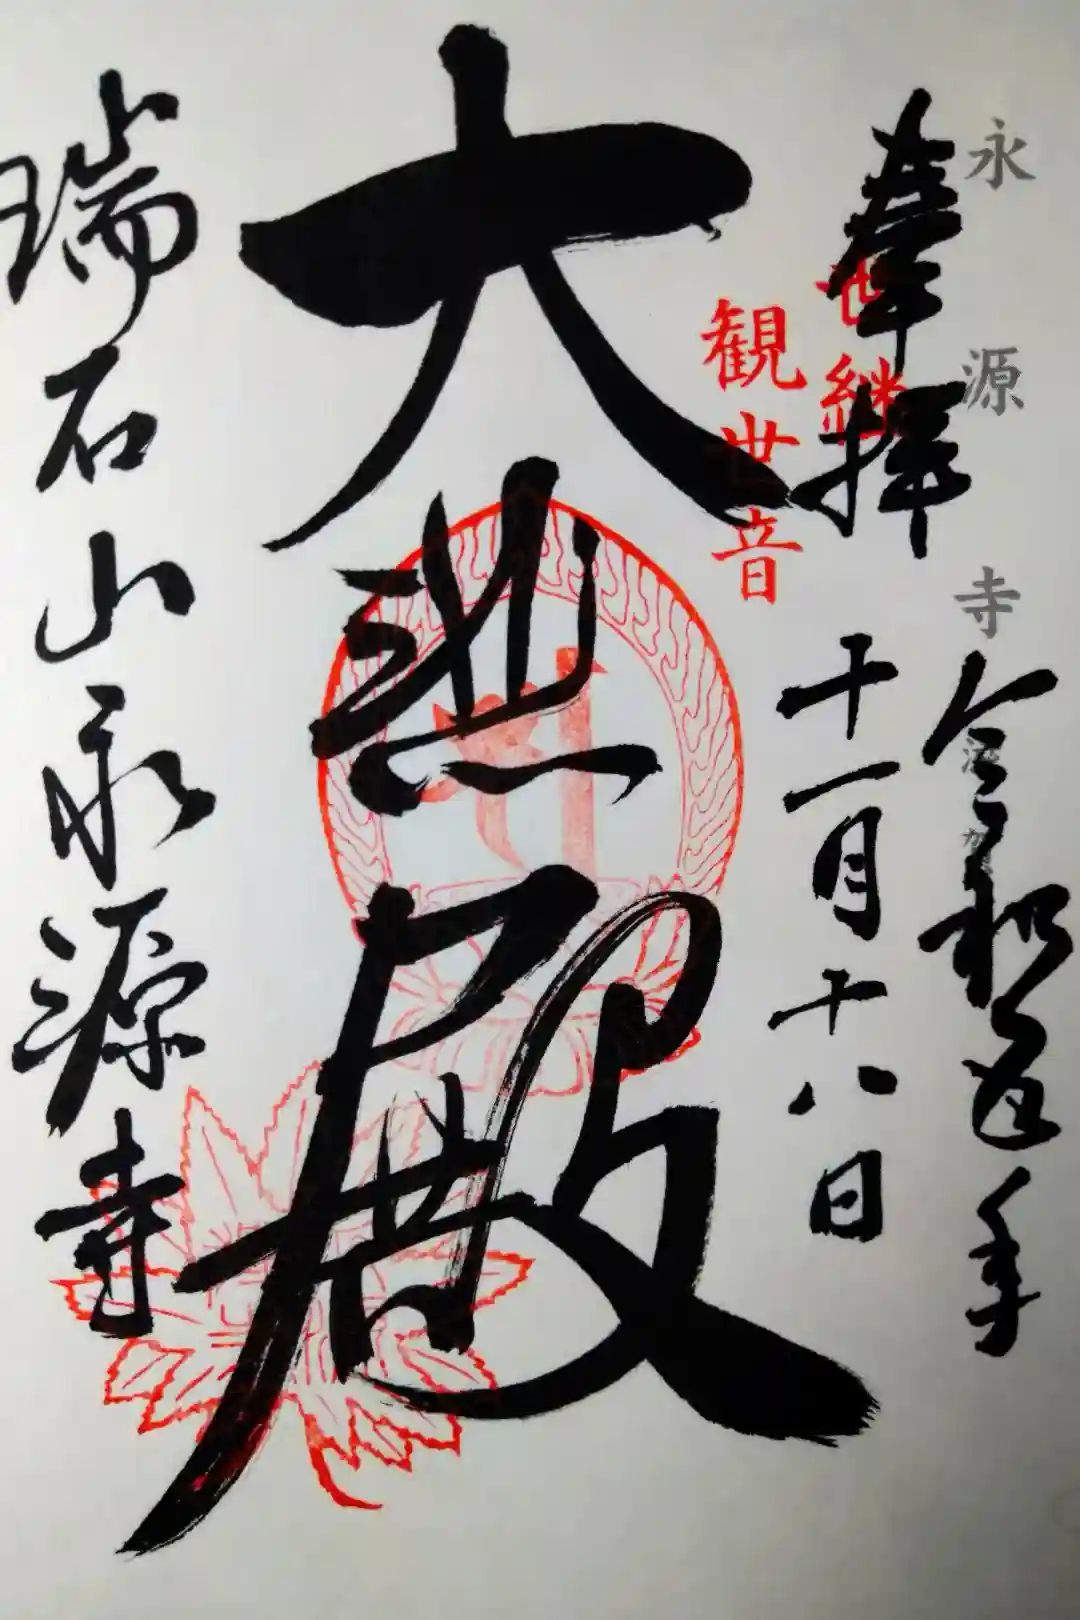 永源寺
滋賀
奉拝
令和 年
十一月十八日
世継
観世音
大悲殿
瑞石山永源寺